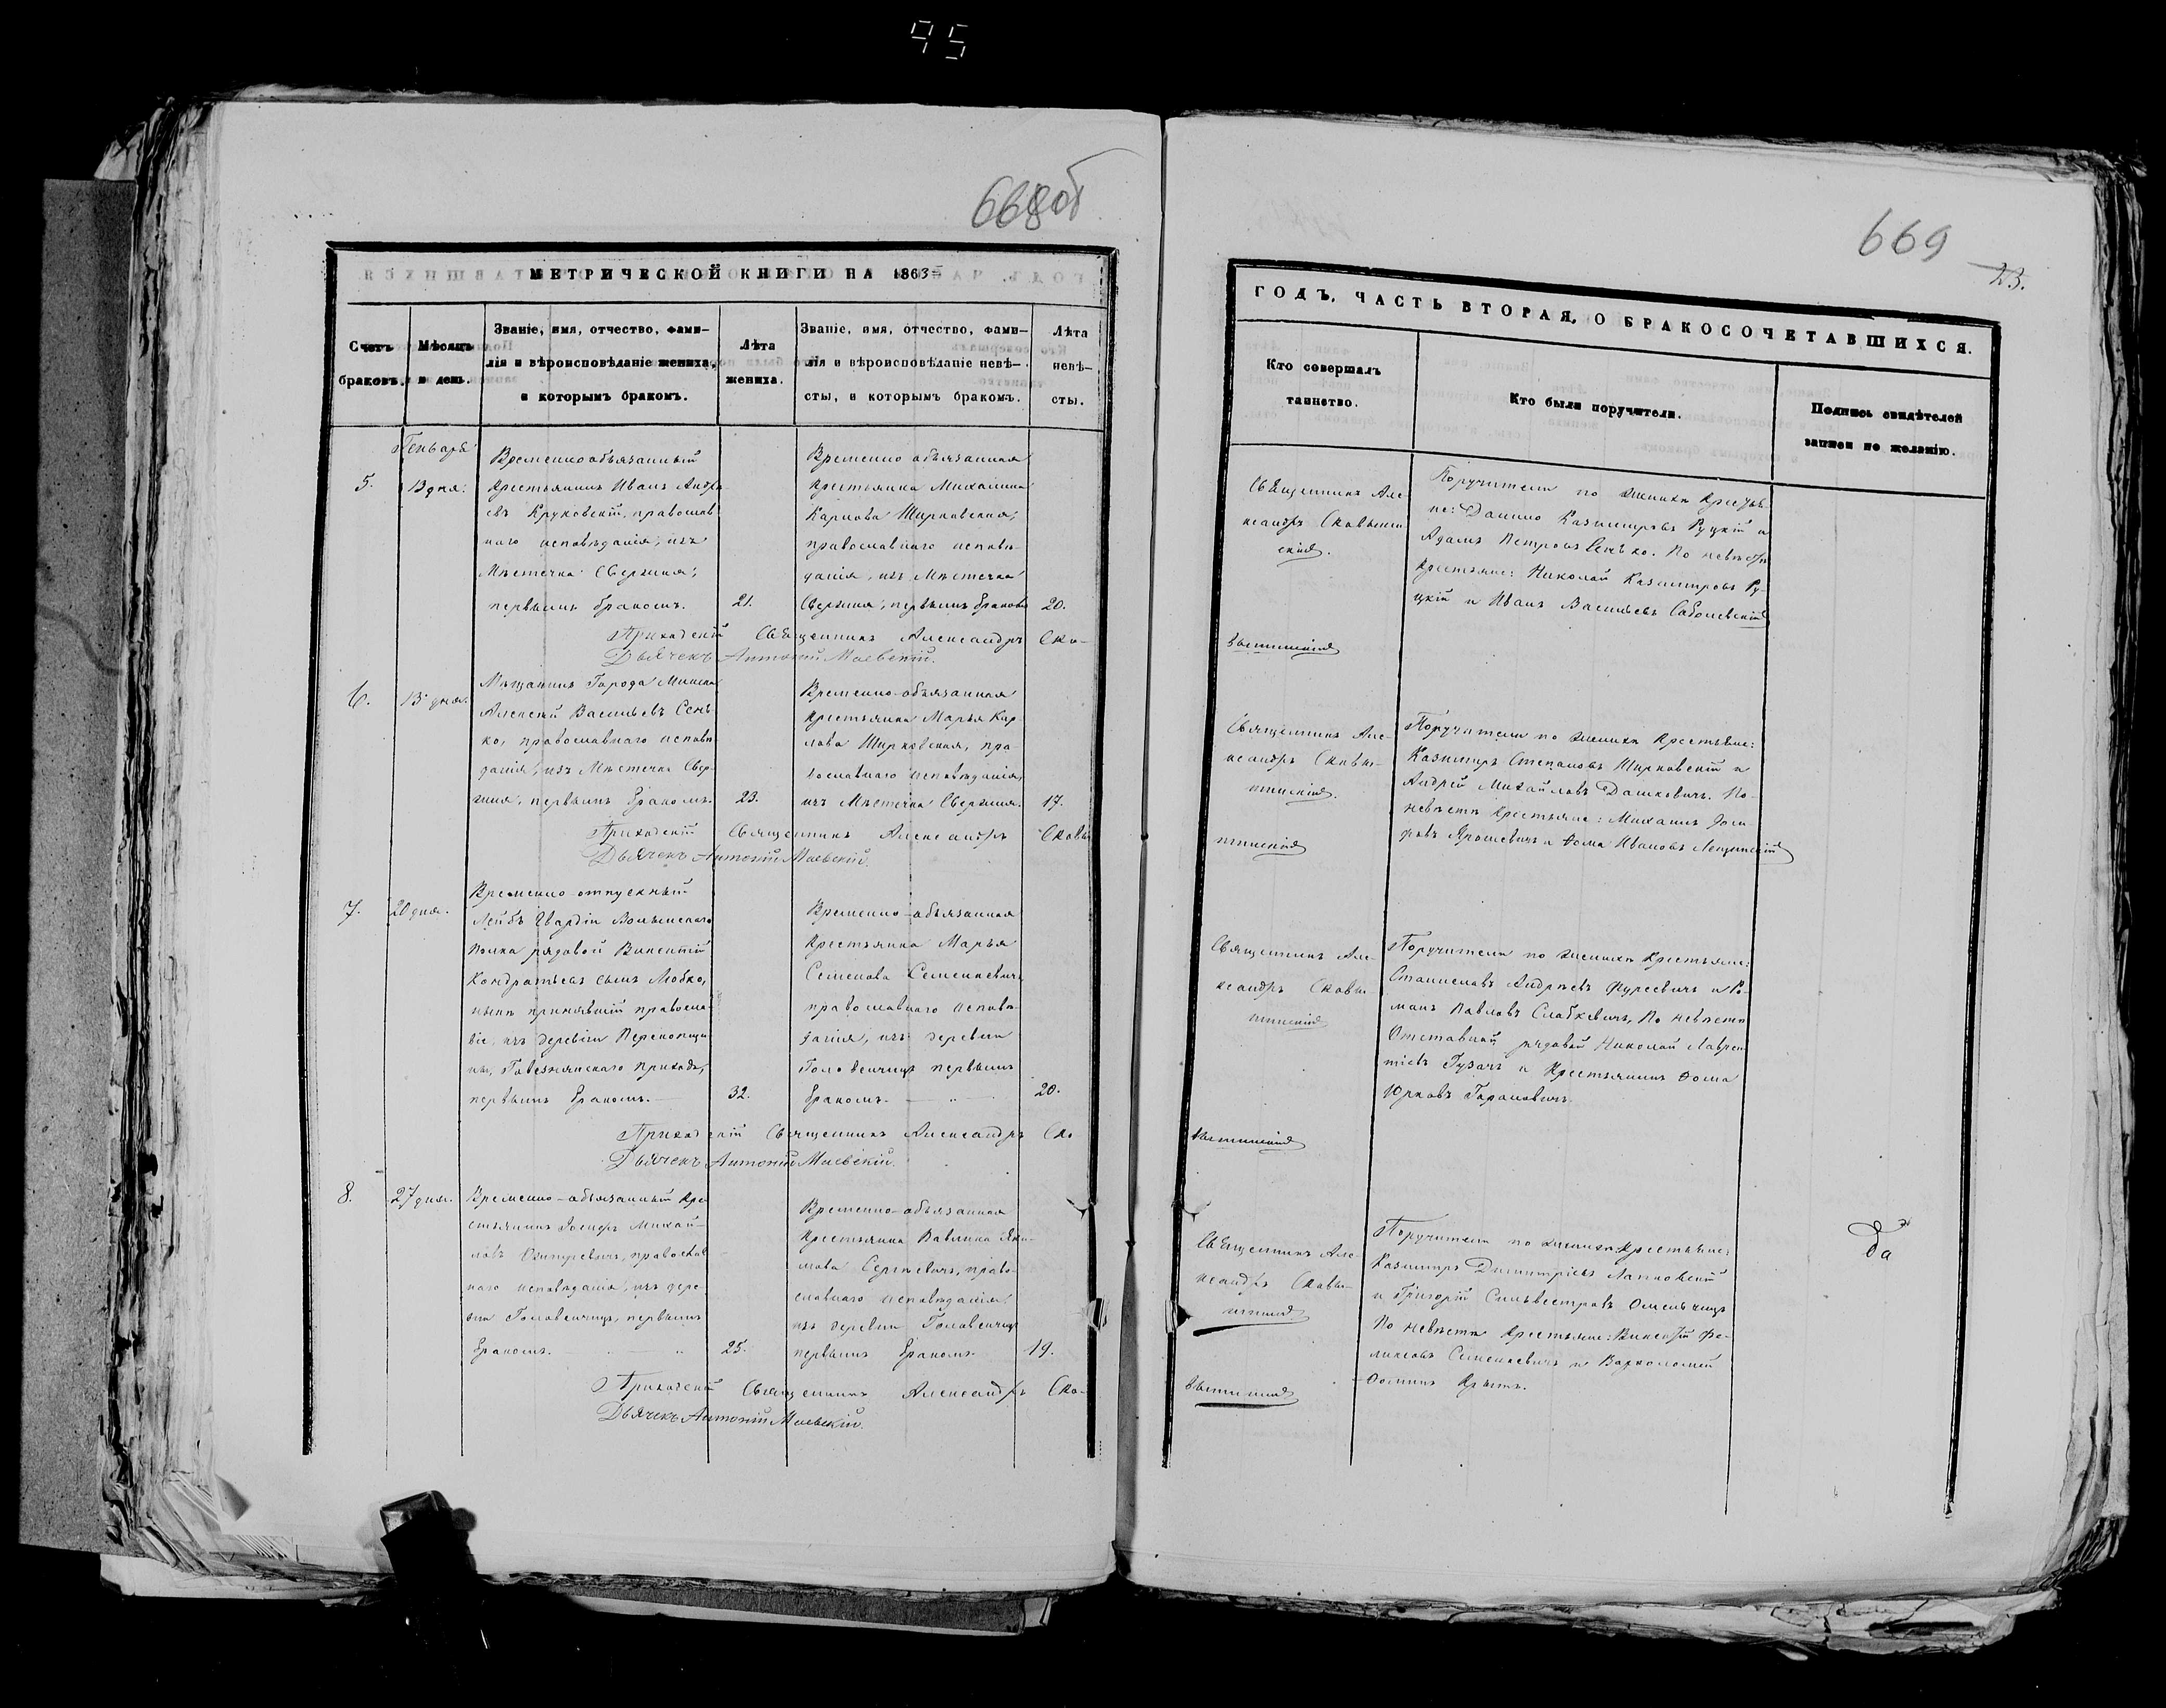 95
668 об
МЕТРИЧЕСКОЙ КНИГИ НА 1863
Счетъ браковъ.
Мѣсяцъ и день.
Званіе, имя, отчество, фами-
лія и вѣроисповѣданіе жениха,
и которымъ бракомъ.
Лѣта
жениха.
Званіе, имя, отчество, фами-
лія и вѣроисповѣданіе невѣ-
сты, и которымъ бракомъ.
Лѣта
невѣ-
сты.
Генваря
5.
13 дня.
Временнообязанный
крестьянинъ Иванъ Андре-
евъ Круковскій, православ
наго исповѣданія, изъ
Мѣстечка Свержня,
первымъ бракомъ.
21.
Временно обязанная
крестьянка
Карлова Ширковская,
православнаго исповѣ-
данія, изъ Мѣстечка
Свержня, первымъ бракомъ
20.
Приходскій Священникъ Александръ Ско-
Дьячекъ Антоній Маевскій.
6.
13 дня.
Мѣщанинъ Города Минска
Алексѣй Васильевъ Сень-
ко, православнаго исповѣ
данія, изъ Мѣстечка Свер-
жня, первымъ бракомъ.
23.
Временно-обязанная
крестьянка Марья Кар-
лова Ширковская, пра
вославнаго исповѣданія,
изъ Мѣстечка Свержня.
17.
Приходскій Священникъ Александръ
Дьячекъ Антоній Маевскій.
7.
20 дня.
Временно-отпускный
Лейбъ Гвардіи Волынскаго
полка рядовой Викентій
Кондратьевъ сынъ Любко,
нынѣ принявшій правосла-
віе, изъ деревни
прихода,
первымъ бракомъ.
32.
Временно-обязанная
крестьянка Марья
Семенова Семенкевичъ
православнаго исповѣ-
данія, изъ деревни
Головенчицъ первымъ
бракомъ.
20.
Приходскій Священникъ Александръ Ско
Дьячекъ Антоній Маевскій.
8.
27 дня.
Временно-обязанный кре
стьянинъ Іосифъ Михай-
ловъ православ
наго исповѣданія, изъ дере-
вни Головенчицъ, первымъ
бракомъ.
25.
Временно-обязанная
крестьянка Павлина Яки-
мова Сергіевичъ, право-
славнаго исповѣданія
изъ деревни Головенчицъ
первымъ бракомъ
19.
Приходскій Священникъ Александръ Ско-
Дьячекъ Антоній Маевскій.
669
23.
ГОДЪ, ЧАСТЬ ВТОРАЯ, О БРАКОСОЧЕТАВШИХСЯ.
Кто совершалъ
таинство.
Кто были поручители.
Подпись свидѣтелей
записи по желанію.
Священникъ Але-
ксандръ
Поручители по женихѣ крестья-
не: Данило Казимировъ Руцкій и
Адамъ Петровъ Сенько. По невѣстѣ
крестьяне: Николай Казимировъ Ру-
цкій и Иванъ Васильевъ Соболевскій
Священникъ Але-
ксандръ
Поручители по женихѣ крестьяне:
Казимиръ Степановъ Ширковскій и
Андрей Михайловъ Дашкевичъ. По
невѣстѣ крестьяне: Михаилъ Іоси-
фовъ и Ѳома Ивановъ Лещинскій
Священникъ Але-
ксандръ
Поручители по женихѣ крестьяне:
Станиславъ Андреевъ Фурсевичъ и Ро-
манъ Павловъ Слабкевичъ, По невѣстѣ
Отставный рядовый Николай Лаврен
тіевъ Гузачъ и Крестьянинъ Ѳома
Юрковъ
Священникъ Але-
ксандръ
Поручители по женихѣ крестьяне:
Казимиръ Димитріевъ Лапковскій
и Григорій Сильвестровъ Омельчицъ
По невѣстѣ крестьяне: Викентій Фе-
ликсовъ Семенкевичъ и Варѳоломей
Ѳоминъ
да